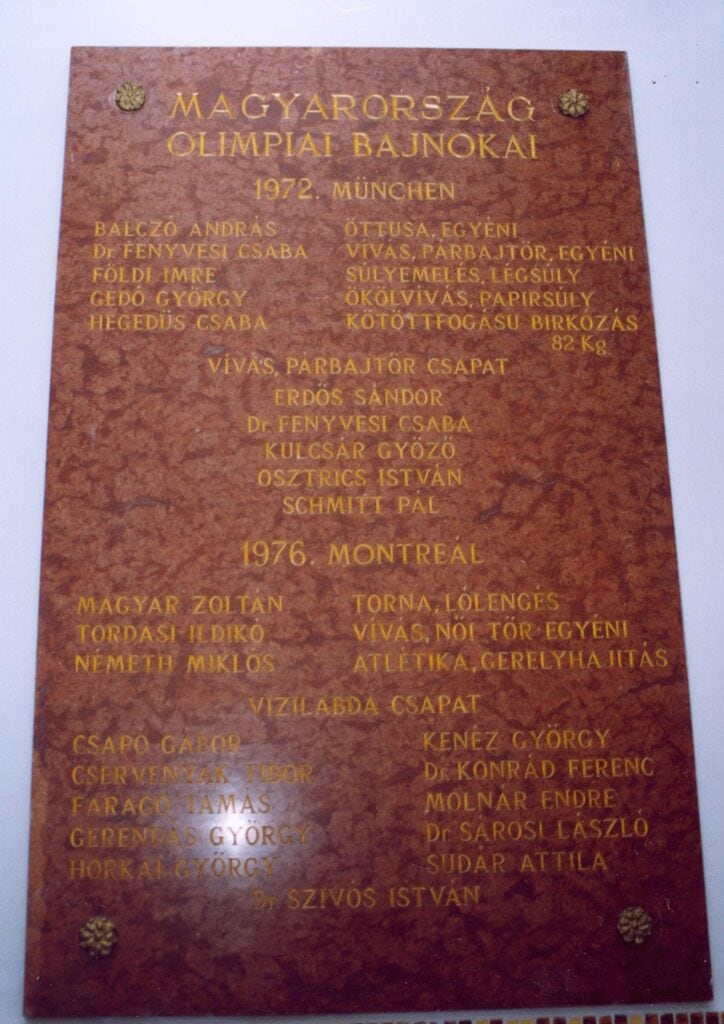 MAGYARORSZÁG
OLIMPIAI BAJNOKAI
1972. MÜNCHEN
BALCZÓ ANDRÁS ÖTTUSA, EGYÉNI
Dr. FENYVESI CSABA VÍVÁS, PÁRBAJTŐR, EGYÉNI
FÖLDI IMRE SÚLYEMELÉS, LÉGSÚLY
GEDÓ GYÖRGY ÖKÖLVÍVÁS, PAPIRSÚLY
HEGEDÜS CSABA KÖTÖTTFOGÁSU BIRKÓZÁS
82 Kg.
VÍVÁS, PÁRBAJTŐR CSAPAT
ERDŐS SÁNDOR
Dr. FENYVESI CSABA
KULCSÁR GYŐZŐ
OSZTRICS ISTVÁN
SCHMITT PÁL
1976. MONTREÁL
MAGYAR ZOLTÁN TORNA, LÓLENGÉS
TORDASI ILDIKÓ VÍVÁS, NŐI TŐR EGYÉNI
NÉMETH MIKLÓS ATLÉTIKA, GERELYHAJITÁS
VIZILABDA CSAPAT
CSAPÓ GÁBOR KENÉZ GYÖRGY
CSERVENYÁK TIBOR Dr. KONRÁD FERENC
FARAGÓ TAMÁS MOLNÁR ENDRE
GERENDÁS GYÖRGY Dr. SÁROSI LÁSZLÓ
HORKAI GYÖRGY SUDÁR ATTILA
Dr. SZIVÓS ISTVÁN